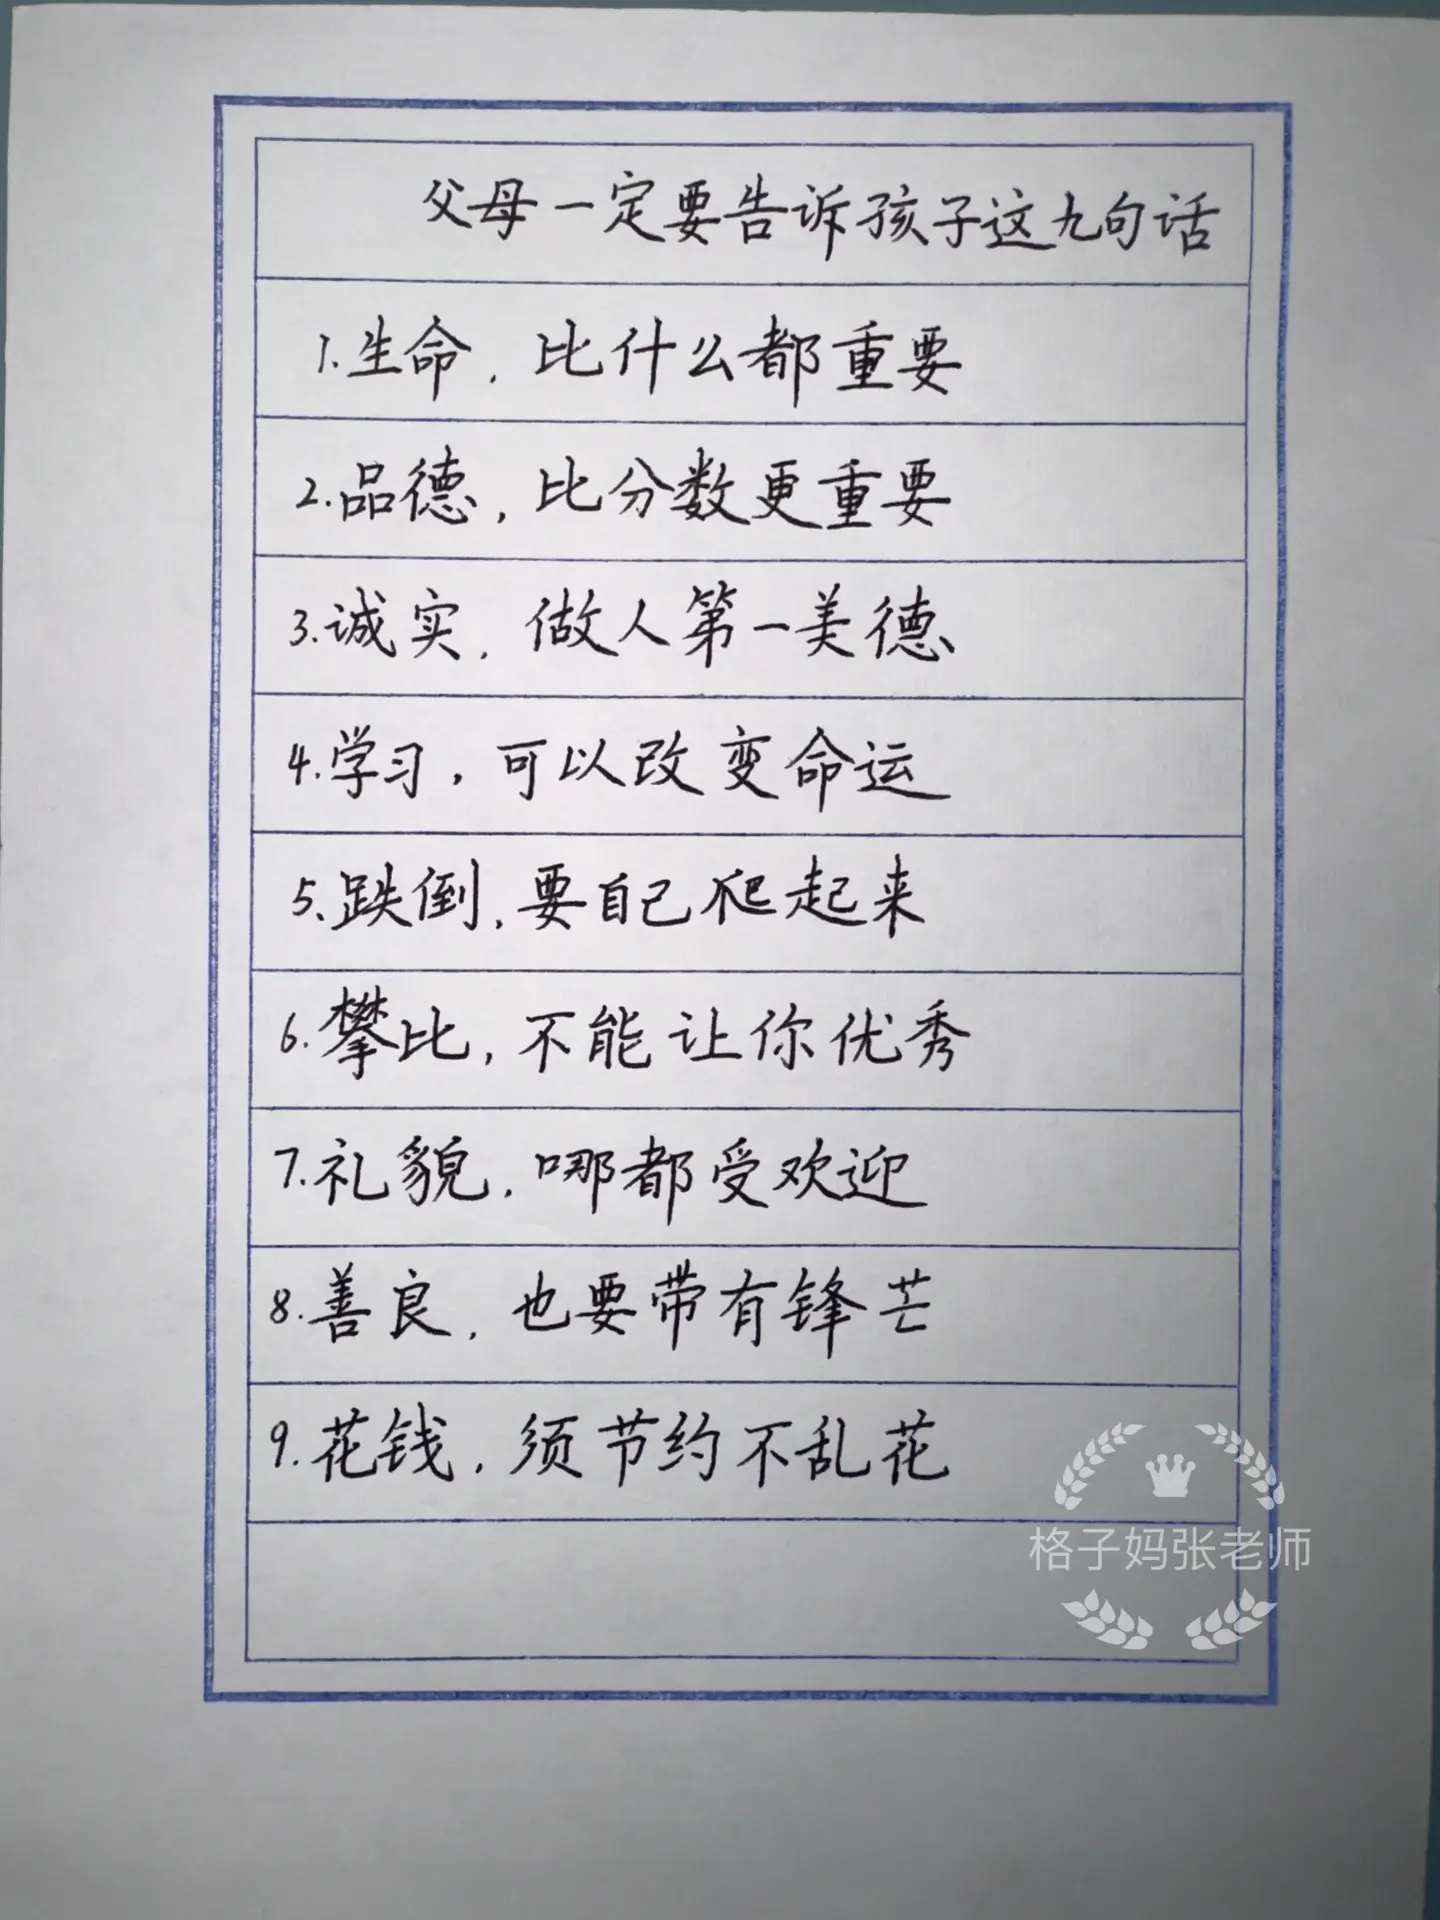 父母一定要告诉孩子这九句话
1.生命,比什么都重要
2.品德,比分数更重要
3.诚实,做人第一美德
4.学习,可以改变命运
5、跌倒,要自己爬起来
6.攀比,不能让你优秀
7.礼貌,哪都受欢迎
8.善良,也要带有锋芒
9.花钱,须节约不乱花
格子妈张老师